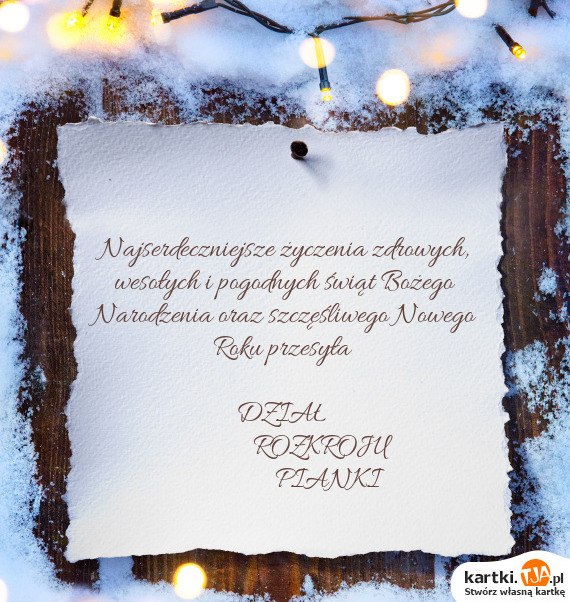 Najserdeczniejsze życzenia zdrowych,
wesołych i pogodnych świąt Bożego
Narodzenia oraz szczęśliwego Nowego
Roku przesyła
DZIAŁ
ROZKROJU
PIANKI
kartki.TJA.pl
Stwórz własną kartkę